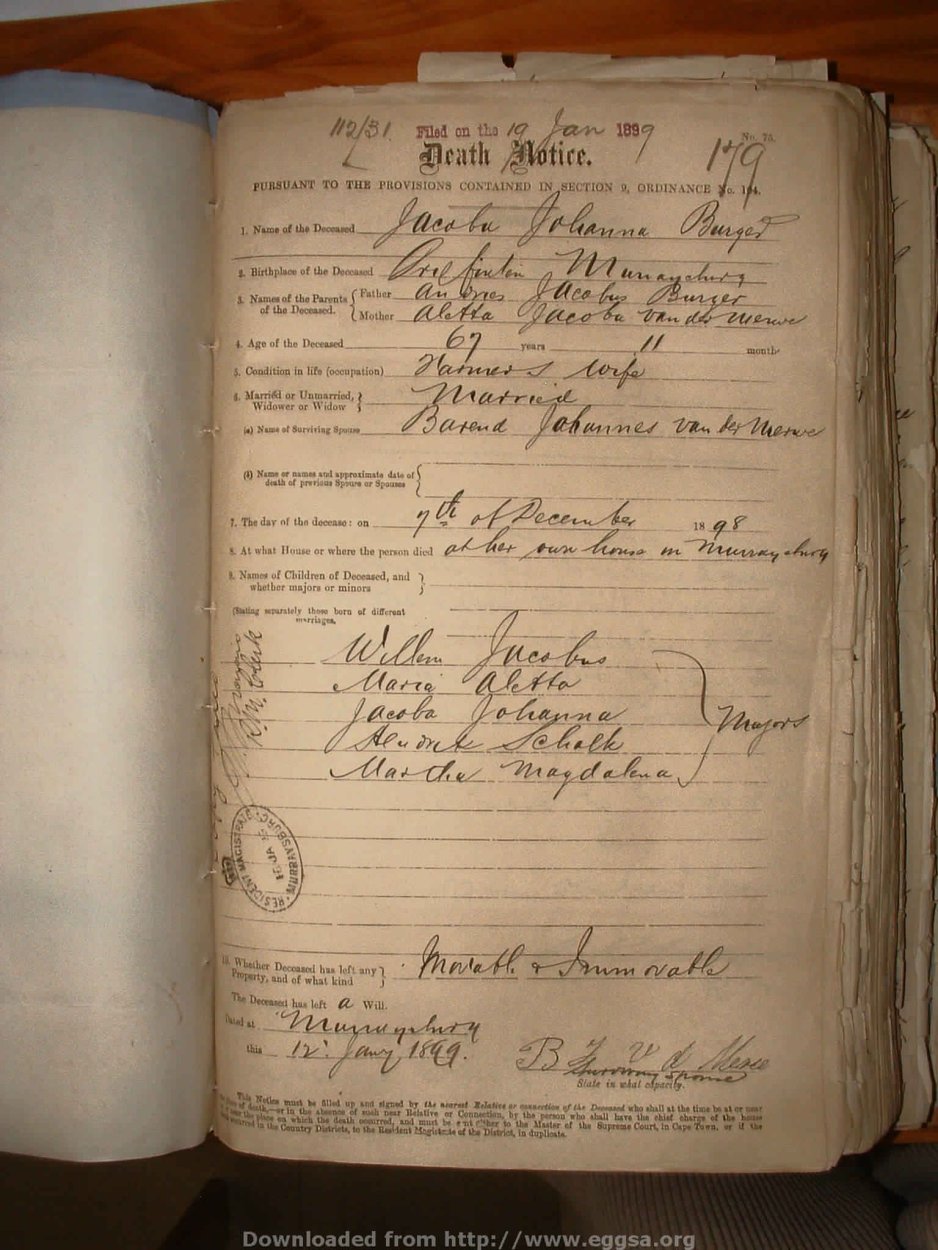 112/31 Filed on the 19 Jan 1899
No. 75.
Death Notice. 179
PURSUANT TO THE PROVISIONS CONTAINED IN SECTION 9, ORDINANCE No. 104.
1. Name of the Deceased Jacoba Johanna Burger
2. Birthplace of the Deceased Murraysburg
3. Names of the Parents of the Deceased. Father Andries Jacobus Burger
Mother Aletta Jacoba van der Merwe
4. Age of the Deceased 67 years 11 month
5. Condition in life (occupation) Farmer's wife
6. Married or Unmarried, Widower or Widow Married
(a) Name of Surviving Spouse Barend Johannes van der Merwe
(b) Name or names and approximate date of death of previous Spouse or Spouses
7. The day of the decease: on 7th of December 1898
8. At what House or where the person died at her own house in Murraysburg
9. Names of Children of Deceased, and whether majors or minors
(Stating separately those born of different marriages,
Willem Jacobus
Maria Aletta
Jacoba Johanna
Hendrik Schalk
Martha Magdalena
Majors
RESIDENT MAGISTRATE MURRAYSBURG
10. Whether Deceased has left any Property, and of what kind Movable & Immovable
The Deceased has left a Will.
Dated at Murraysburg
this 12 Jany 1899.
B J v d Merwe
Surviving Spouse
State in what capacity.
This Notice must be filled up and signed by the nearest Relative or connection of the Deceased who shall at the time be at or near
place of death,—or in the absence of such near Relative or Connection, by the person who shall have the chief charge of the house
the place on which the death occurred, and must be sent either to the Master of the Supreme Court, in Cape Town, or if the
occurred in the Country Districts, to the Resident Magistrate of the District, in duplicate.
Downloaded from http://www.eggsa.org